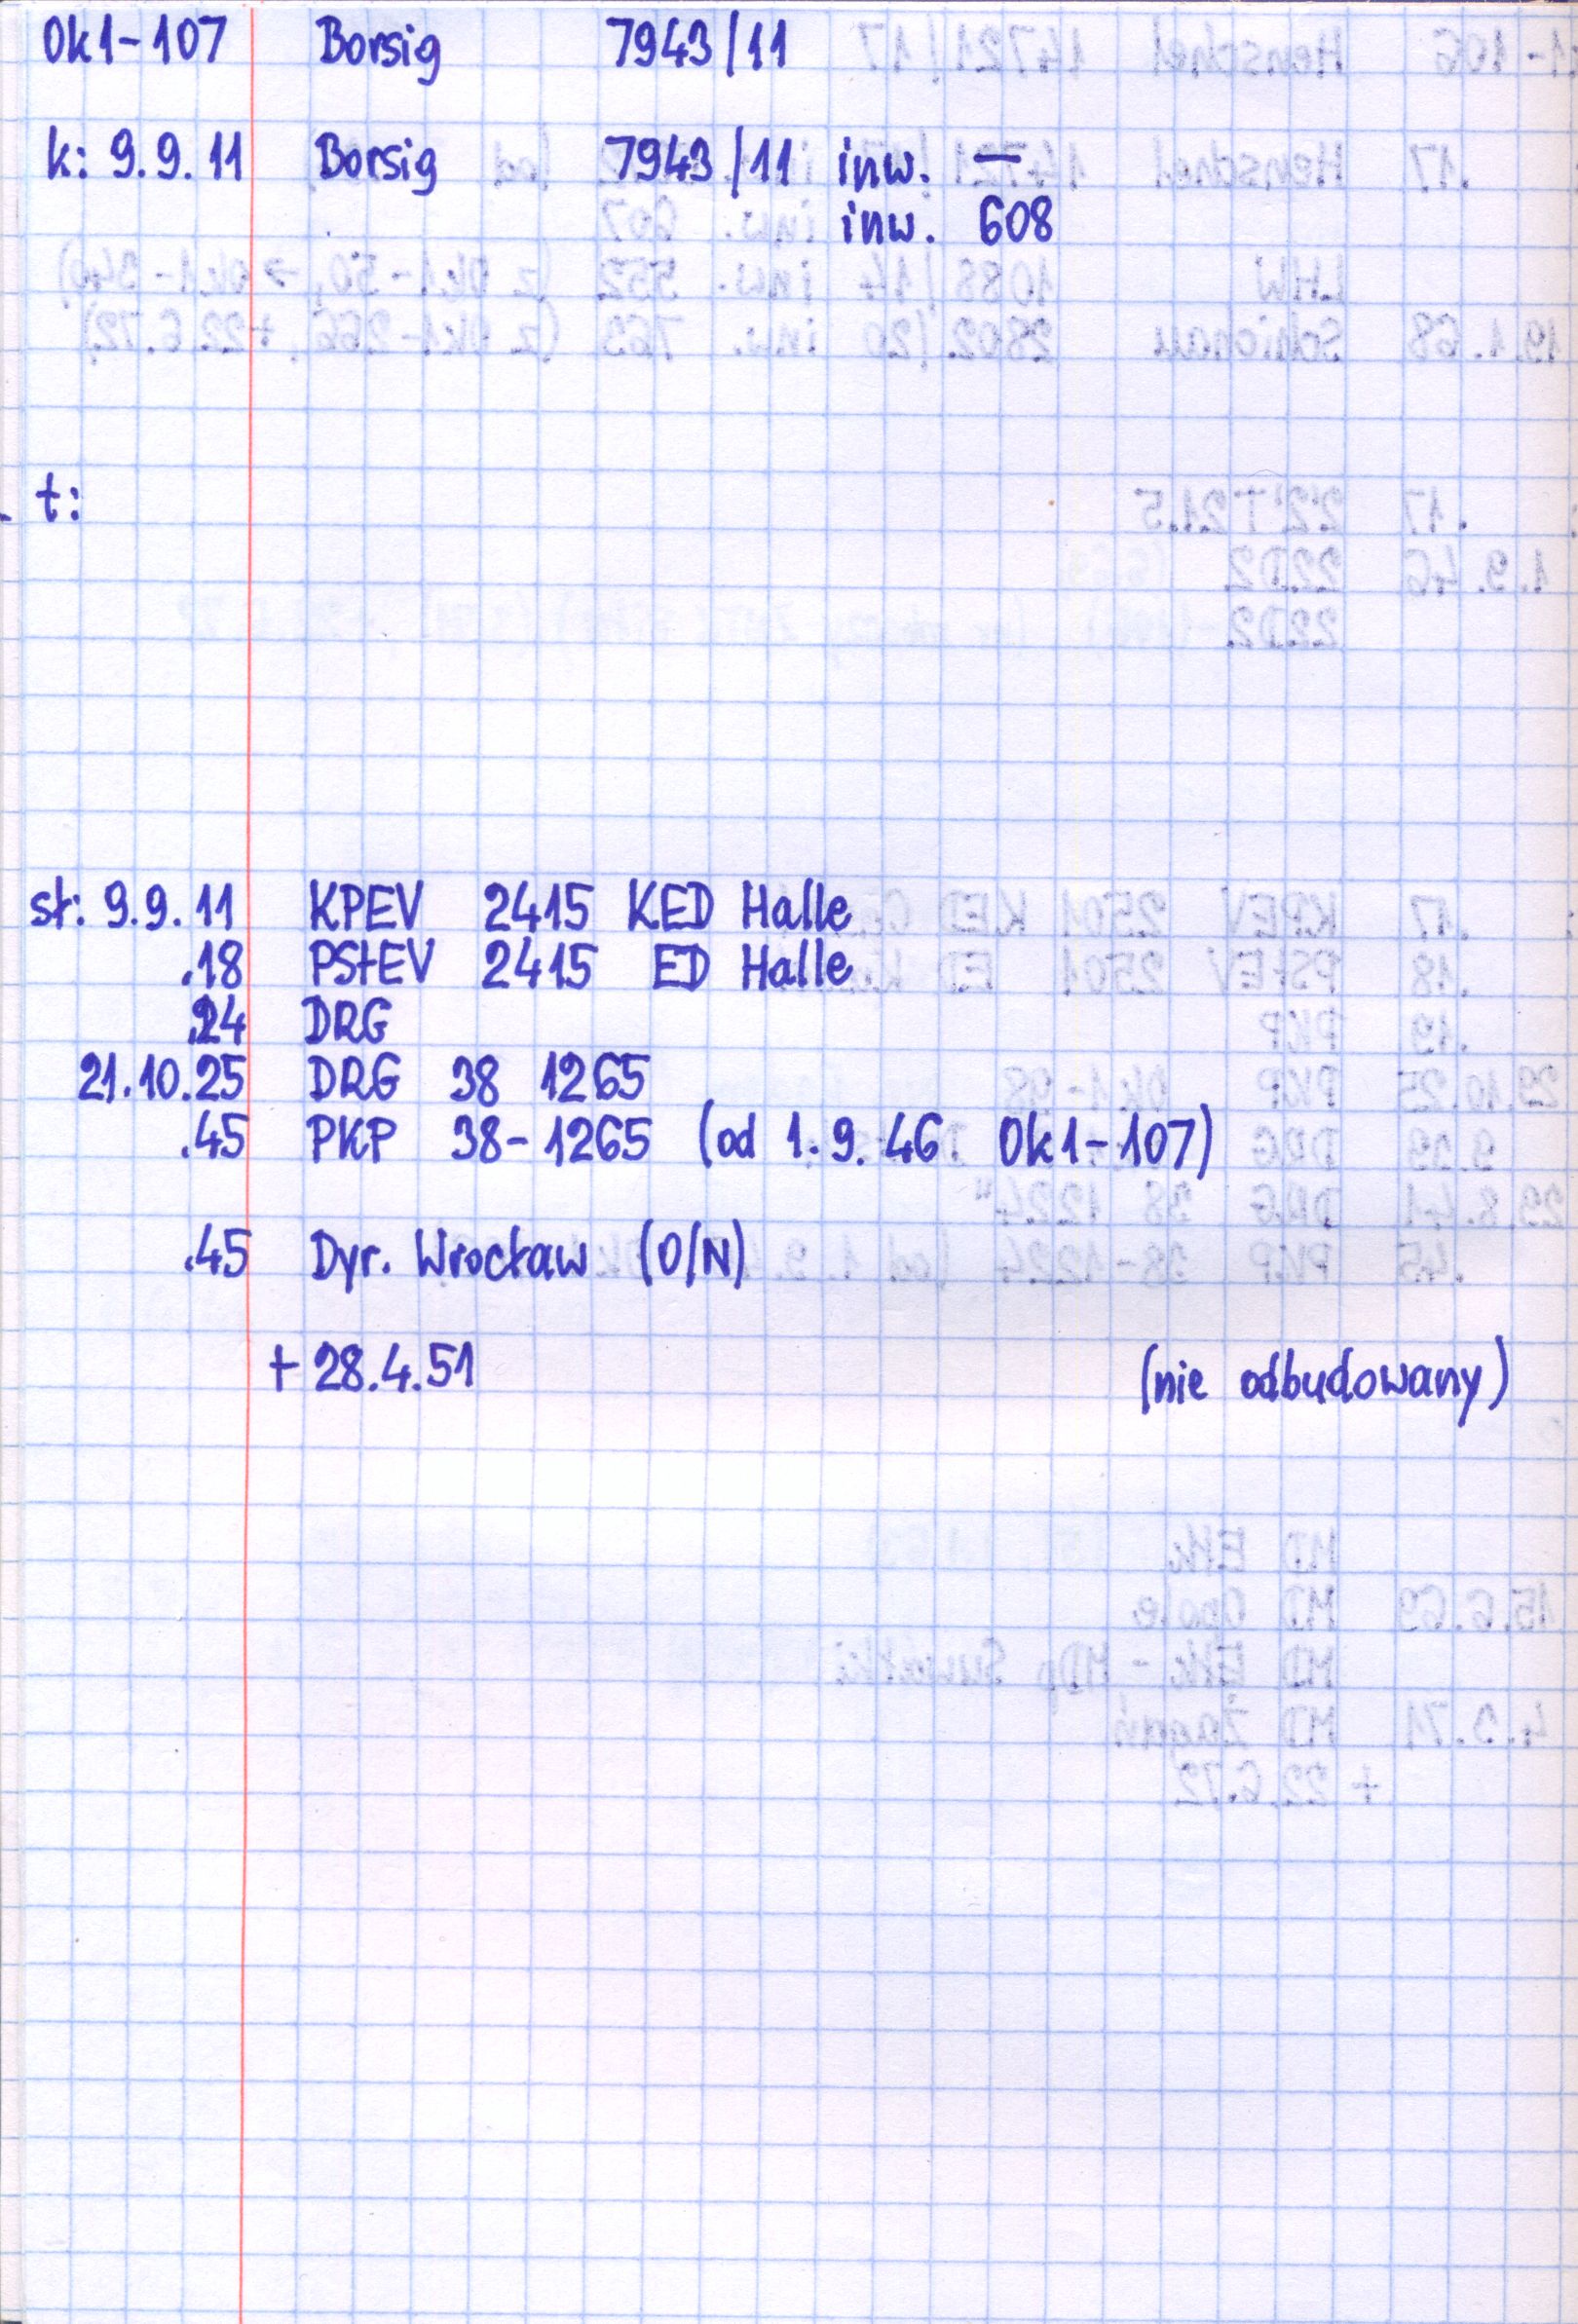 Ok1-107 Borsig 7943/11
k: 9.9.11 Borsig 7943/11 inw. —
inw. 608
t:
st: 9.9.11 KPEV 2415 KED Halle
.18 PStEV 2415 ED Halle
.24 DRG
21.10.25 DRG 38 1265
.45 PKP 38-1265 (od 1.9.46 Ok1-107)
.45 Dyr. Wrocław (O/N)
+ 28.4.51 (nie odbudowany)